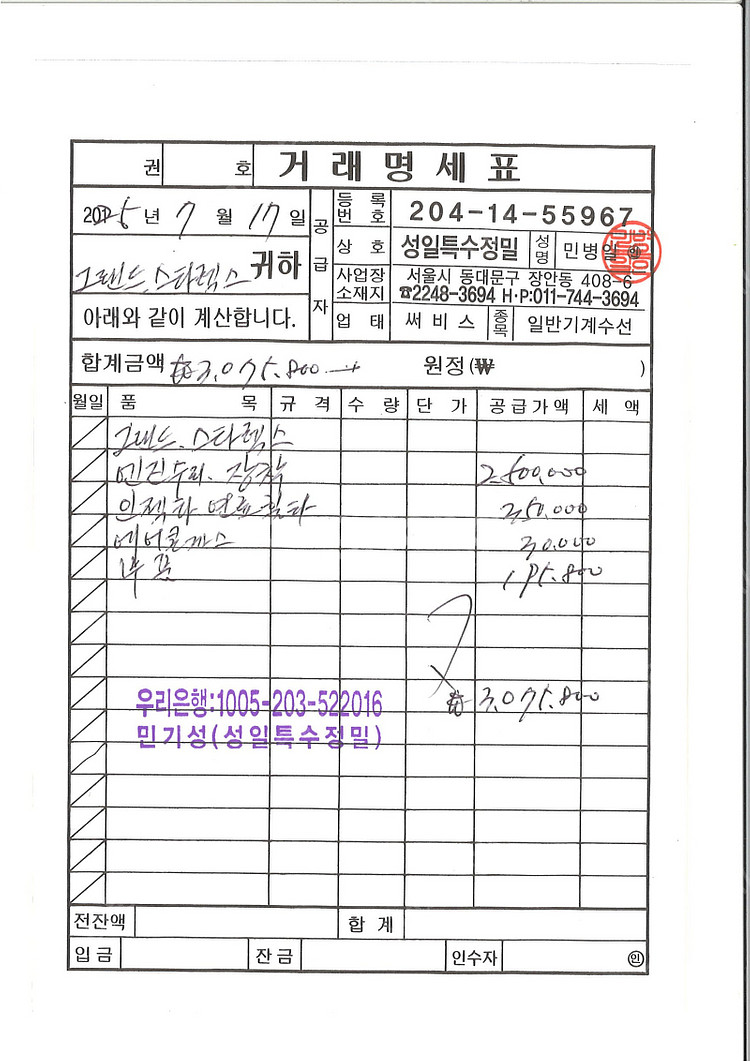 권 호 거래명세표
2025년 7월 17일
그랜드 스타렉스 귀하
아래와 같이 계산합니다.
공급자
등록번호 204-14-55967
상호 성일특수정밀 성명 민병일 ㊞
사업장소재지 서울시 동대문구 장안동 408-6
☎2248-3694 H·P:011-744-3694
업태 써비스 종목 일반기계수선
합계금액 ₩3,075,800 원정(₩ )
월일 품목 규격 수량 단가 공급가액 세액
그랜드 스타렉스
엔진수리. 장착 2,500,000
인젝타 연료휠타 350,000
에어콘까스 30,000
부품 195,800
₩3,075,800
우리은행:1005-203-522016
민기성(성일특수정밀)
전잔액 합계
입금 잔금 인수자 ㊞